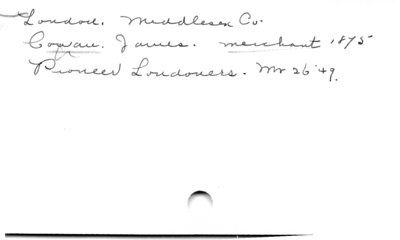 London. Middlesex Co.
Cowan. James. merchant 1875
Pioneer Londoners. Mr 26 '49.